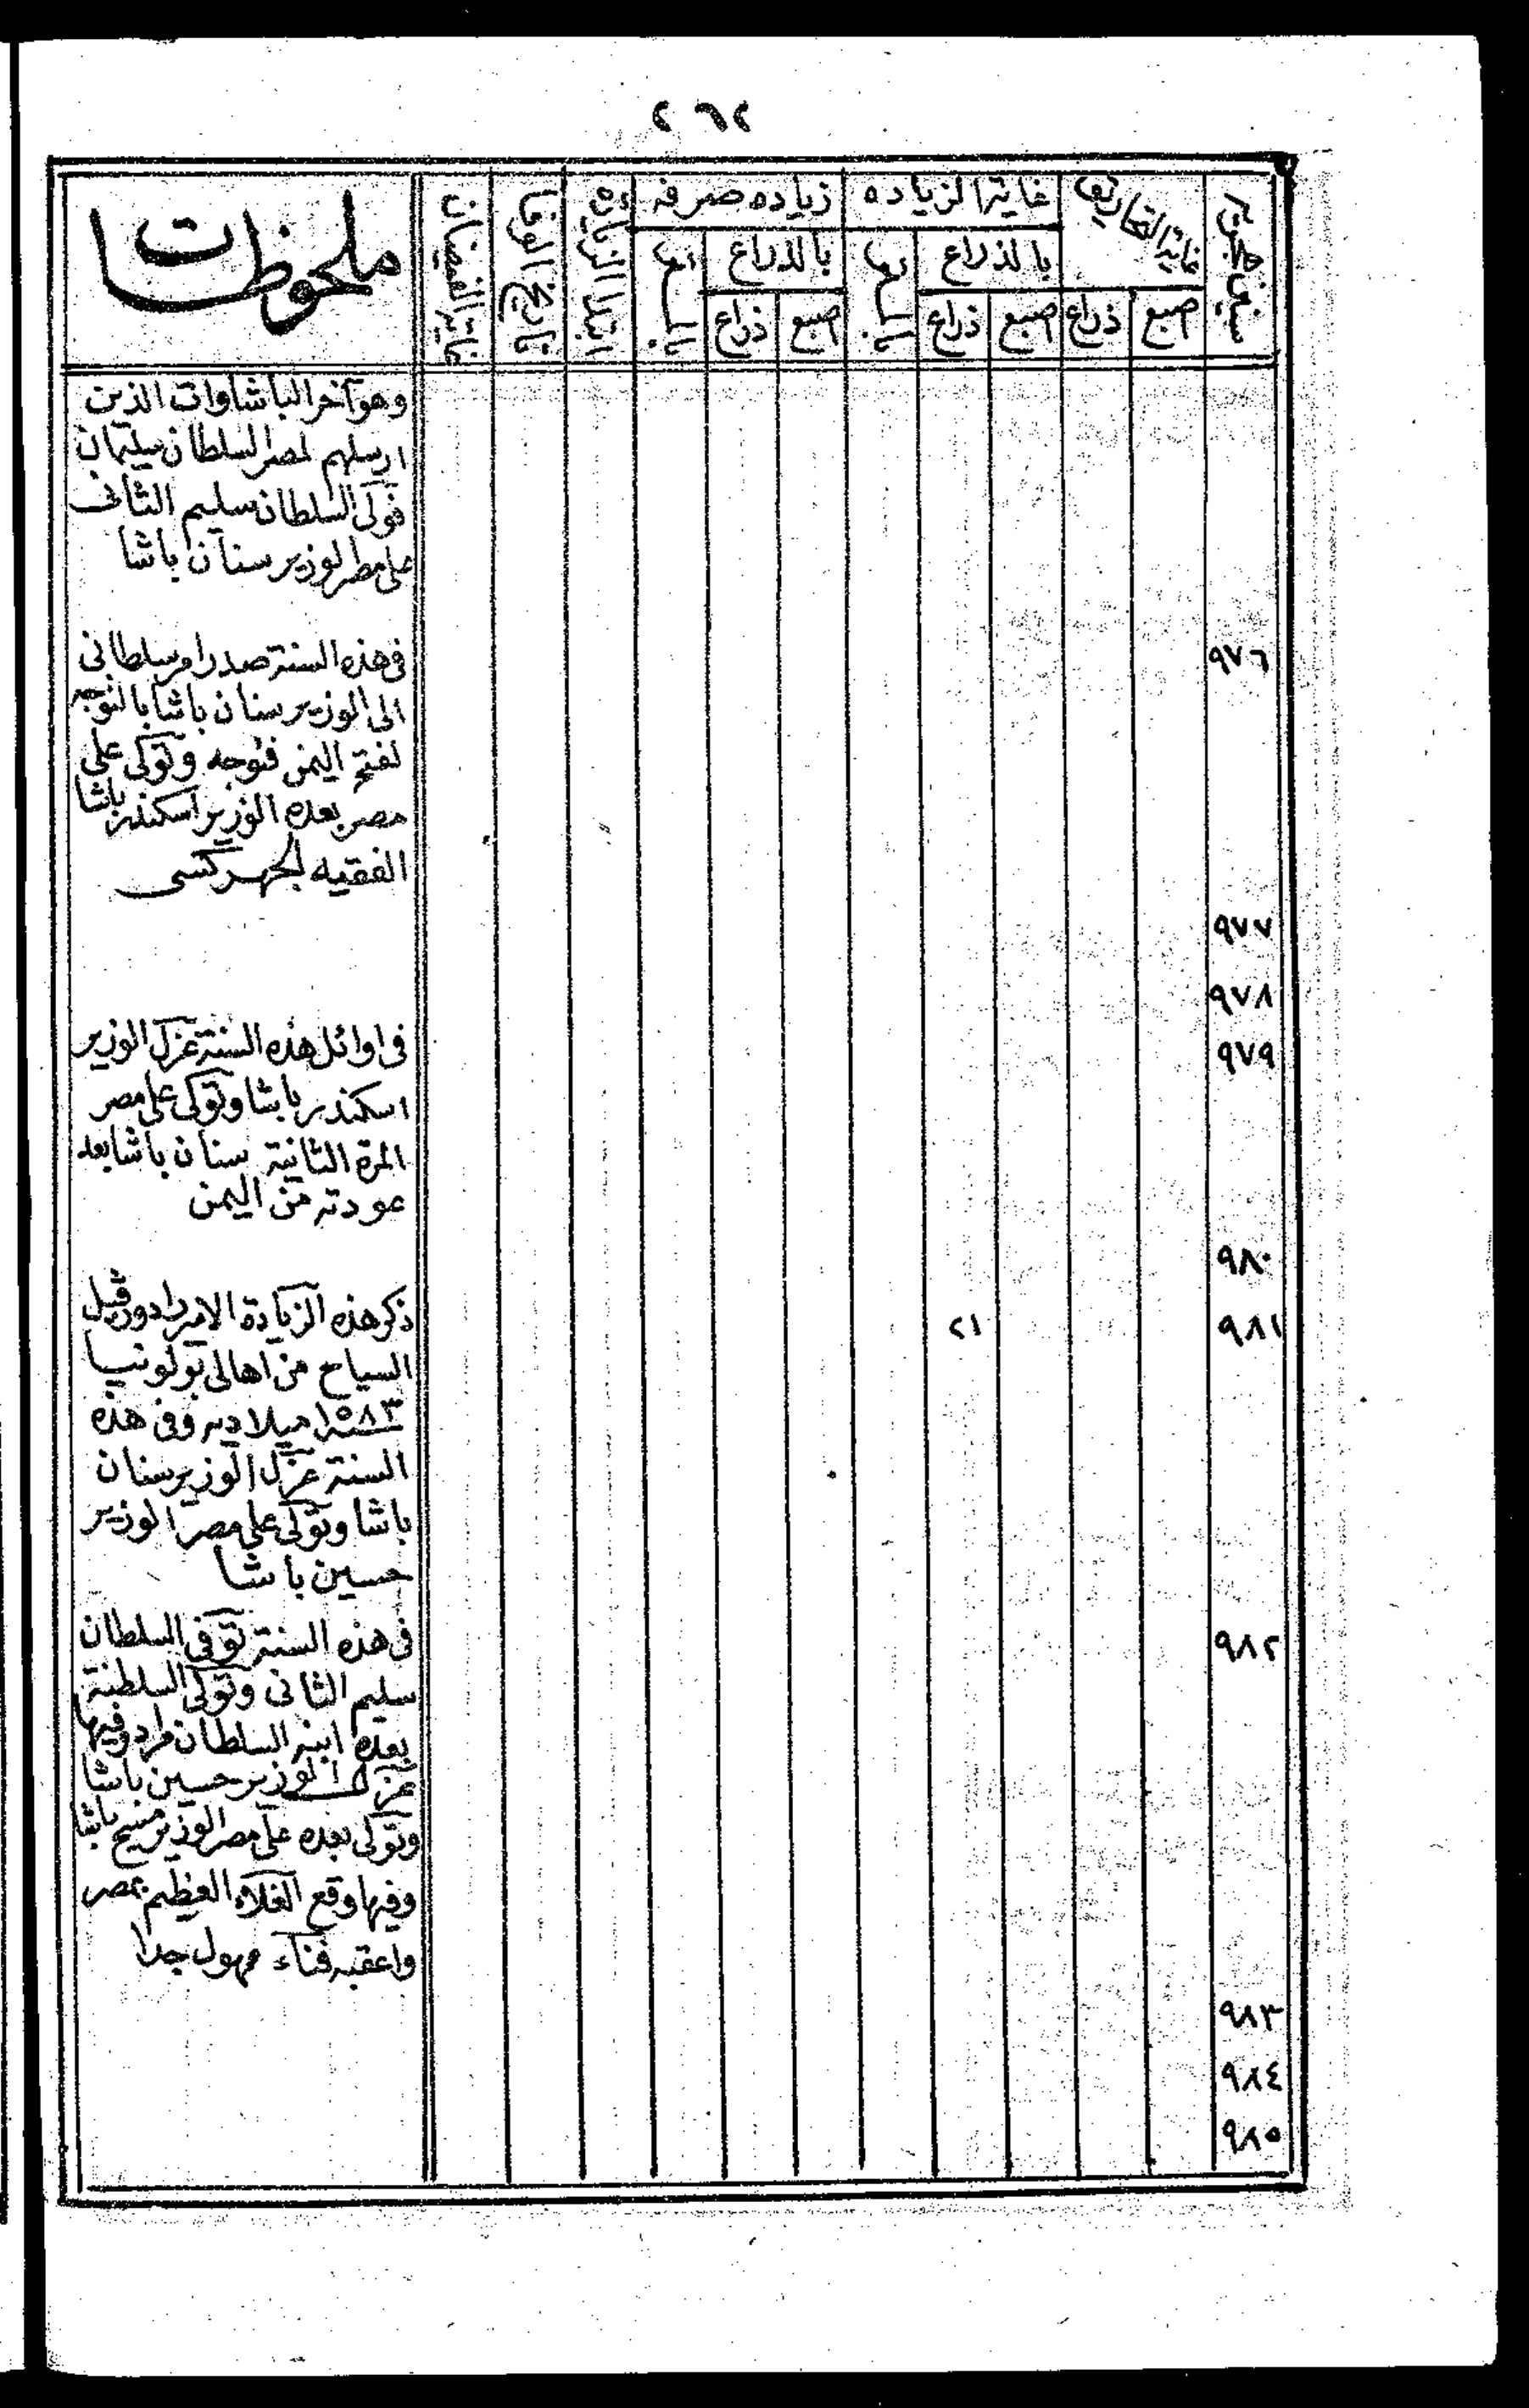 ٢٦٢
سنين هجريه
غاية التحاريق
غاية الزياده
زياده صرفه
ابتدا الزياده
تاريخ الوفا
غاية الفيضان
ملحوظات
بالذراع
بالمتر
بالذراع
بالمتر
اصبع
ذراع
اصبع
ذراع
اصبع
ذراع
وهو آخر الباشاوات الذين
ارسلهم لمصر السلطان سليمان
فولى السلطان سليم الثانى
على مصر الوزير سنان باشا
٩٧٦
فى هذه السنة صدر امر سلطانى
الى الوزير سنان باشا بالتوجه
لفتح اليمن فتوجه وتولى على
مصر بعده الوزير اسكندر باشا
الفقيه الجهركسى
٩٧٧
٩٧٨
٩٧٩
فى اوائل هذه السنة عزل الوزير
اسكندر باشا وتولى على مصر
المرة الثانية سنان باشا بعد
عودته من اليمن
٩٨٠
٩٨١
٢١
ذكر هذه الزيادة الامير ادورقيل
السياح من اهالى بولونيا
سنة ١٥٨٣ ميلاديه وفى هذه
السنة عزل الوزير سنان
باشا وتولى على مصر الوزير
حسين باشا
٩٨٢
فى هذه السنة توفى السلطان
سليم الثانى وتولى السلطنة
بعده ابنه السلطان مراد وفيها
عزل الوزير حسين باشا
وتولى بعده على مصر الوزير مسيح باشا
وفيها وقع الغلاء العظيم بمصر
واعقبه فناء مهول جدا
٩٨٣
٩٨٤
٩٨٥